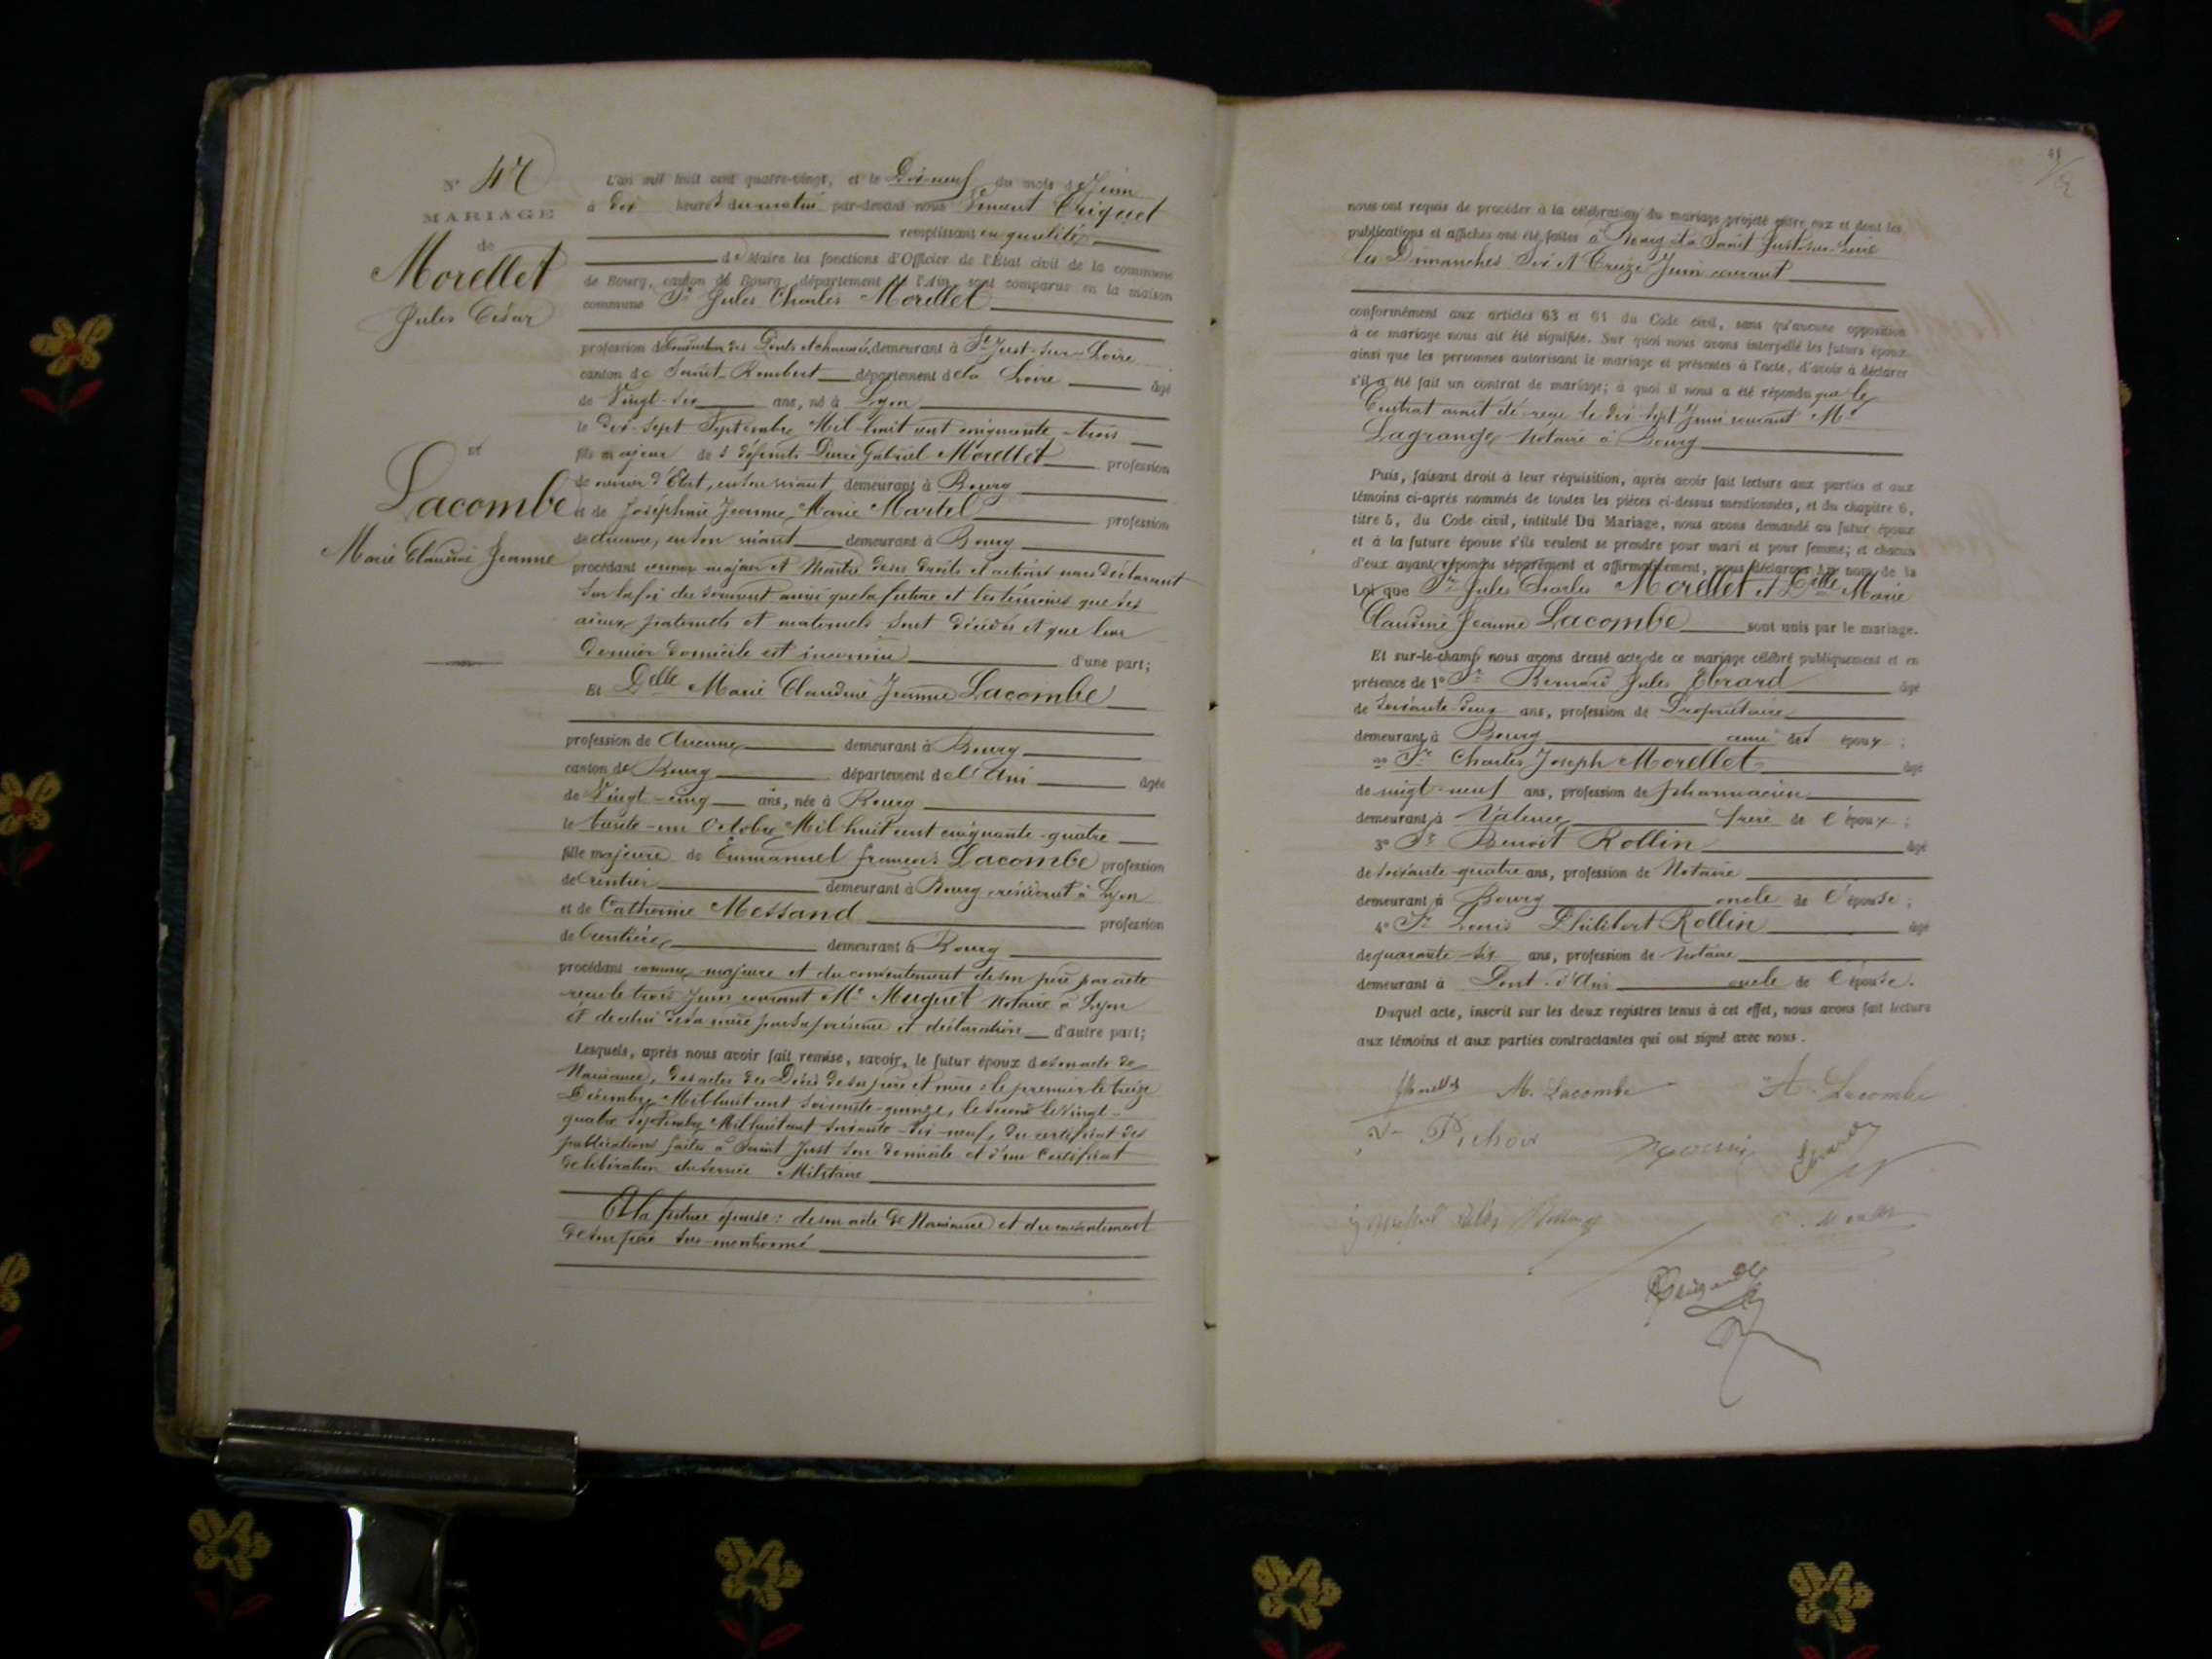 N° 47
MARIAGE
de
Morellet
Jules César
et
Lacombe
Marie Claudine Jeanne
L'an mil huit cent quatre-vingt, et le Dix-neuf du mois de Juin
à dix heures du matin par-devant nous
remplissant en qualité
de Maire les fonctions d'Officier de l'État civil de la commune
de Bourg, canton de Bourg, département de l'Ain, sont comparus en la maison
commune Sr Jules Charles Morellet
profession de Conducteur des Ponts et chaussées, demeurant à St Just-sur-Loire
canton de Saint-Rambert département de la Loire âgé
de Vingt-six ans, né à Lyon
le dix-sept Septembre Mil-huit cent cinquante-trois
fils majeur de s défunts Pierre Gabriel Morellet profession
de demeurant à Bourg
et de Joséphine Jeanne Marie Martel profession
de aucune, en son vivant demeurant à Bourg
procédant comme majeur et Maître de ses droits et actions nous déclarant
sur la foi du serment ainsi que la future et les témoins que ses
aïeux paternels et maternels sont décédés et que leur
dernier domicile est inconnu d'une part;
Et Delle Marie Claudine Jeanne Lacombe
profession de Aucune demeurant à Bourg
canton de Bourg département de l'Ain âgée
de Vingt-cinq ans, née à Bourg
le trente-un Octobre Mil huit cent cinquante-quatre
fille majeure de Emmanuel françois Lacombe profession
de rentier demeurant à Bourg, résidant à Lyon
et de Catherine Messand profession
de rentière demeurant à Bourg
procédant comme majeure et du consentement de son père par acte
reçu le trois Juin courant Me Muguet Notaire à Lyon
et de celui de sa mère par sa présence et déclaration d'autre part;
Lesquels, après nous avoir fait remise, savoir, le futur époux de son acte de
Naissance, des actes des Décès de ses père et mère : le premier le treize
Décembre Mil huit cent soixante-quinze, le second le vingt-
quatre Septembre Mil huit cent soixante-dix-neuf, du certificat des
publications faites à Saint Just son domicile et d'un Certificat
de libération du service Militaire
Et la future épouse : de son acte de Naissance et du consentement
de son père sus-mentionné
nous ont requis de procéder à la célébration du mariage projeté entre eux et dont les
publications et affiches ont été faites à Bourg et à Saint Just-sur-Loire
les Dimanches Six et Treize Juin courant
conformément aux articles 63 et 64 du Code civil, sans qu'aucune opposition
à ce mariage nous ait été signifiée. Sur quoi nous avons interpellé les futurs époux
ainsi que les personnes autorisant le mariage et présentes à l'acte, d'avoir à déclarer
s'il a été fait un contrat de mariage; à quoi il nous a été répondu que le
Contrat avait été reçu le dix-sept Juin courant Me
Lagrange Notaire à Bourg
Puis, faisant droit à leur réquisition, après avoir fait lecture aux parties et aux
témoins ci-après nommés de toutes les pièces ci-dessus mentionnées, et du chapitre 6,
titre 5, du Code civil, intitulé Du Mariage, nous avons demandé au futur époux
et à la future épouse s'ils veulent se prendre pour mari et pour femme; et chacun
d'eux ayant répondu séparément et affirmativement, nous déclarons au nom de la
Loi que Sr Jules Charles Morellet et Delle Marie
Claudine Jeanne Lacombe sont unis par le mariage.
Et sur-le-champ nous avons dressé acte de ce mariage célébré publiquement et en
présence de 1° Sr Bernard Jules Ebrard âgé
de soixante-deux ans, profession de Propriétaire
demeurant à Bourg ami des époux ;
2° Sr Charles Joseph Morellet âgé
de vingt-neuf ans, profession de pharmacien
demeurant à Valence frère de l'époux ;
3° Sr Benoit Rollin âgé
de soixante-quatre ans, profession de Notaire
demeurant à Bourg oncle de l'épouse ;
4° Sr Louis Philibert Rollin âgé
de quarante-six ans, profession de Notaire
demeurant à Pont-d'Ain oncle de l'épouse.
Duquel acte, inscrit sur les deux registres tenus à cet effet, nous avons fait lecture
aux témoins et aux parties contractantes qui ont signé avec nous.
M. Lacombe
Lacombe